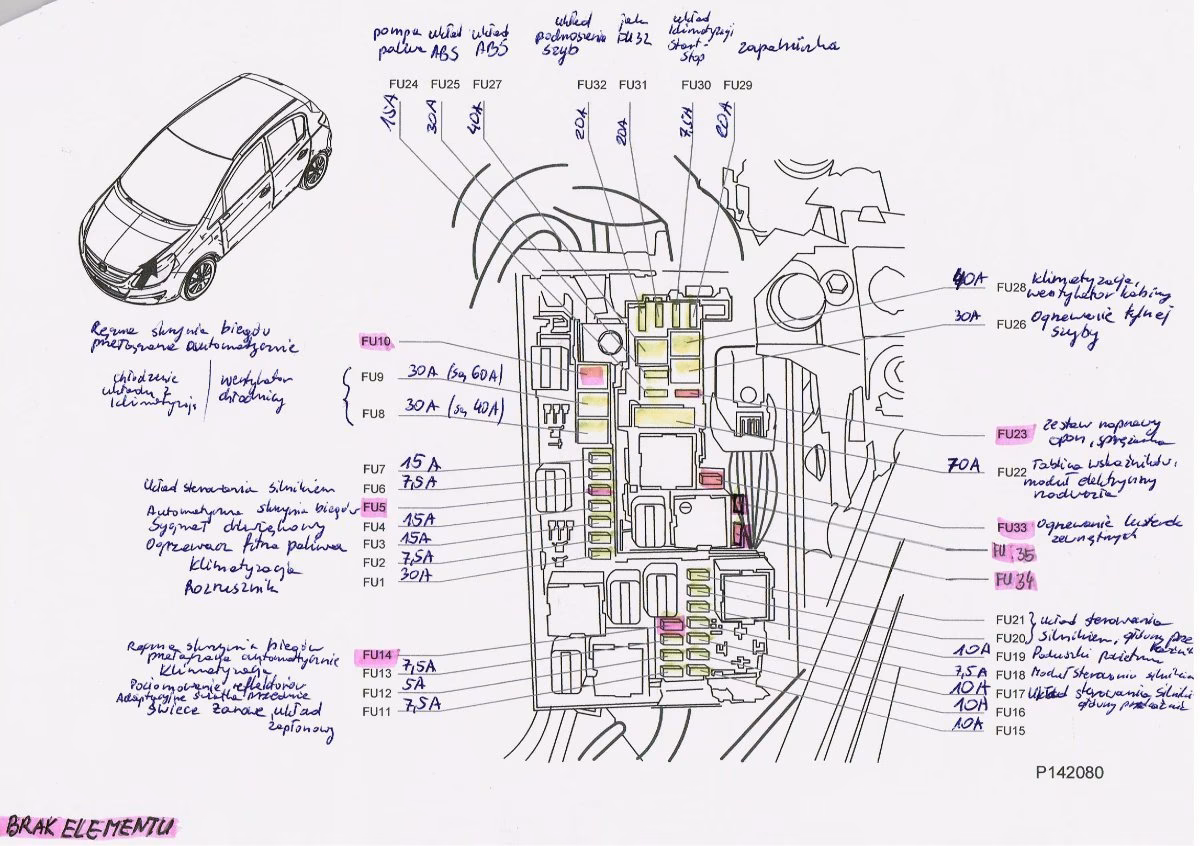 pompa paliwa
układ ABS
układ ABS
układ podnoszenia szyb
jak FU32
układ klimatyzacji Start-Stop
zapalniczka
FU24 FU25 FU27 FU32 FU31 FU30 FU29
15A 30A 40A 20A 20A 7,5A 20A
Ręczna skrzynia biegów
przełączana automatycznie
FU10
chłodzenie układu klimatyzacji
wentylator chłodnicy
FU9 30A (są 60A)
FU8 30A (są 40A)
FU7 15A
Układ sterowania silnikiem FU6 7,5A
Automatyczna skrzynia biegów FU5
Sygnał dźwiękowy FU4 15A
Ogrzewacz filtra paliwa FU3 15A
Klimatyzacja FU2 7,5A
Rozrusznik FU1 30A
Ręczna skrzynia biegów
przełączana automatycznie FU14
Klimatyzacja FU13 7,5A
Poziomowanie reflektorów
Adaptacyjne światła przednie FU12 5A
Świece żarowe, układ
zapłonowy
FU11 7,5A
40A FU28 Klimatyzacja,
wentylator kabiny
30A FU26 Ogrzewanie tylnej
szyby
FU23 Zestaw naprawy
opon, sprężarka
70A FU22 Tablica wskaźników,
moduł elektryczny
nadwozia
FU33 Ogrzewanie lusterek
zewnętrznych
FU 35
FU 34
FU21 układ sterowania
FU20 silnikiem, główny
10A FU19 Poduszki powietrzne
7,5A FU18 Moduł sterowania silnikiem
10A FU17 Układ sterowania silnika
główny przekaźnik
10A FU16
10A FU15
P142080
BRAK ELEMENTU